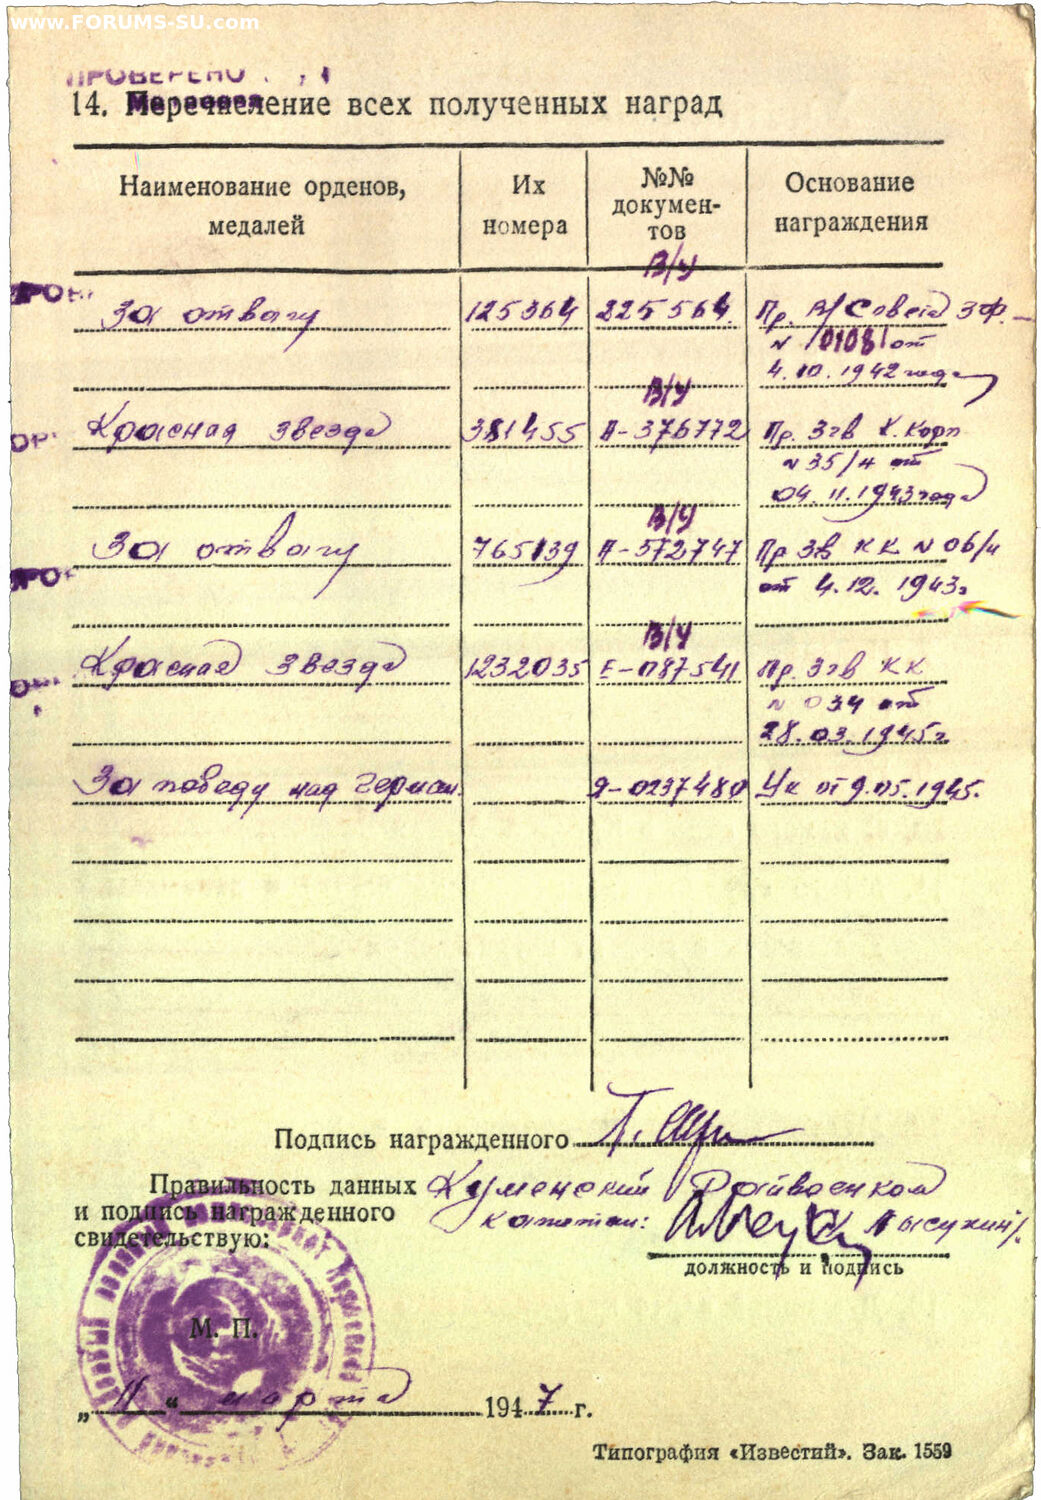 www.FORUMS-SU.com
ПРОВЕРЕНО
14. Перечисление всех полученных наград
Наименование орденов, медалей
Их номера
№№ докумен-тов
Основание награждения
В/у
За отвагу 125364 225564 Пр. В/Совета ЗФ.
N 0108 от
4.10.1942 года
В/у
Красная звезда 381455 А-376772 Пр. 3гв К.Корп
N 35/н от
04.11.1943 года
В/у
За отвагу 765139 А-572747 Пр 3гв КК N 06/н
от 4.12.1943г
В/у
Красная звезда 1232035 Е-087541 Пр. 3гв КК
N 034 от
28.03.1945г
За победу над Герман. Я-0237480 Ук от 9.05.1945.
Подпись награжденного
Правильность данных
и подпись награжденного
свидетельствую:
Куменский Райвоенком
капитан: Лысухин/.
должность и подпись
М. П.
„ 11 “ марта 1947 г.
Типография «Известий». Зак. 1559